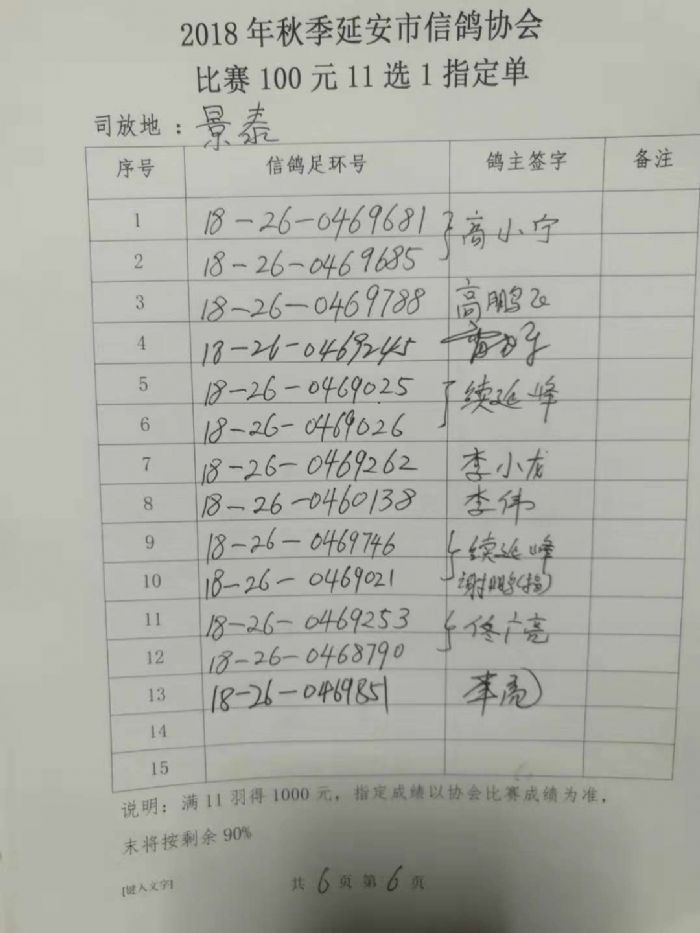 2018年秋季延安市信鸽协会
比赛100元11选1指定单
司放地：景泰
序号 信鸽足环号 鸽主签字 备注
1 18-26-0469681 高小宁
2 18-26-0469685
3 18-26-0469788 高鹏飞
4 18-26-0469245
5 18-26-0469025 续延峰
6 18-26-0469026
7 18-26-0469262 李小龙
8 18-26-0460138 李伟
9 18-26-0469746 续延峰
10 18-26-0469021 谢鹏(指)
11 18-26-0469253 佟广亮
12 18-26-0468790
13 18-26-0469851 李亮
14
15
说明：满11羽得1000元，指定成绩以协会比赛成绩为准，
末将按剩余90%
[键入文字]
共6页第6页